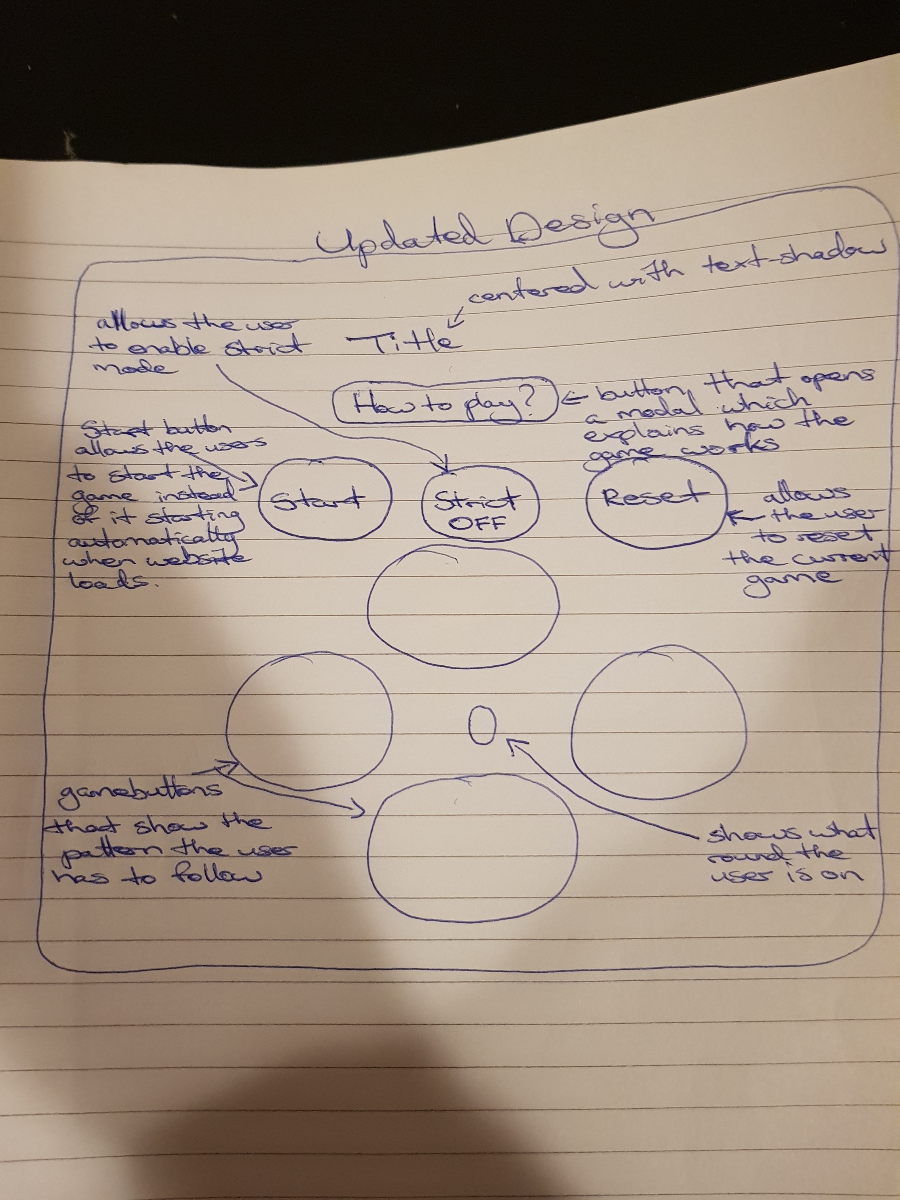 Updated Design
centered with text-shadow
Title
allows the user
to enable strict
mode
How to play?
button that opens
a modal which
explains how the
game works
Start button
allows the users
to start the
game instead
of it starting
automatically
when website
loads.
Start
Strict
OFF
Reset
allows
the user
to reset
the current
game
0
gamebuttons
that show the
pattern the user
has to follow
shows what
round the
user is on